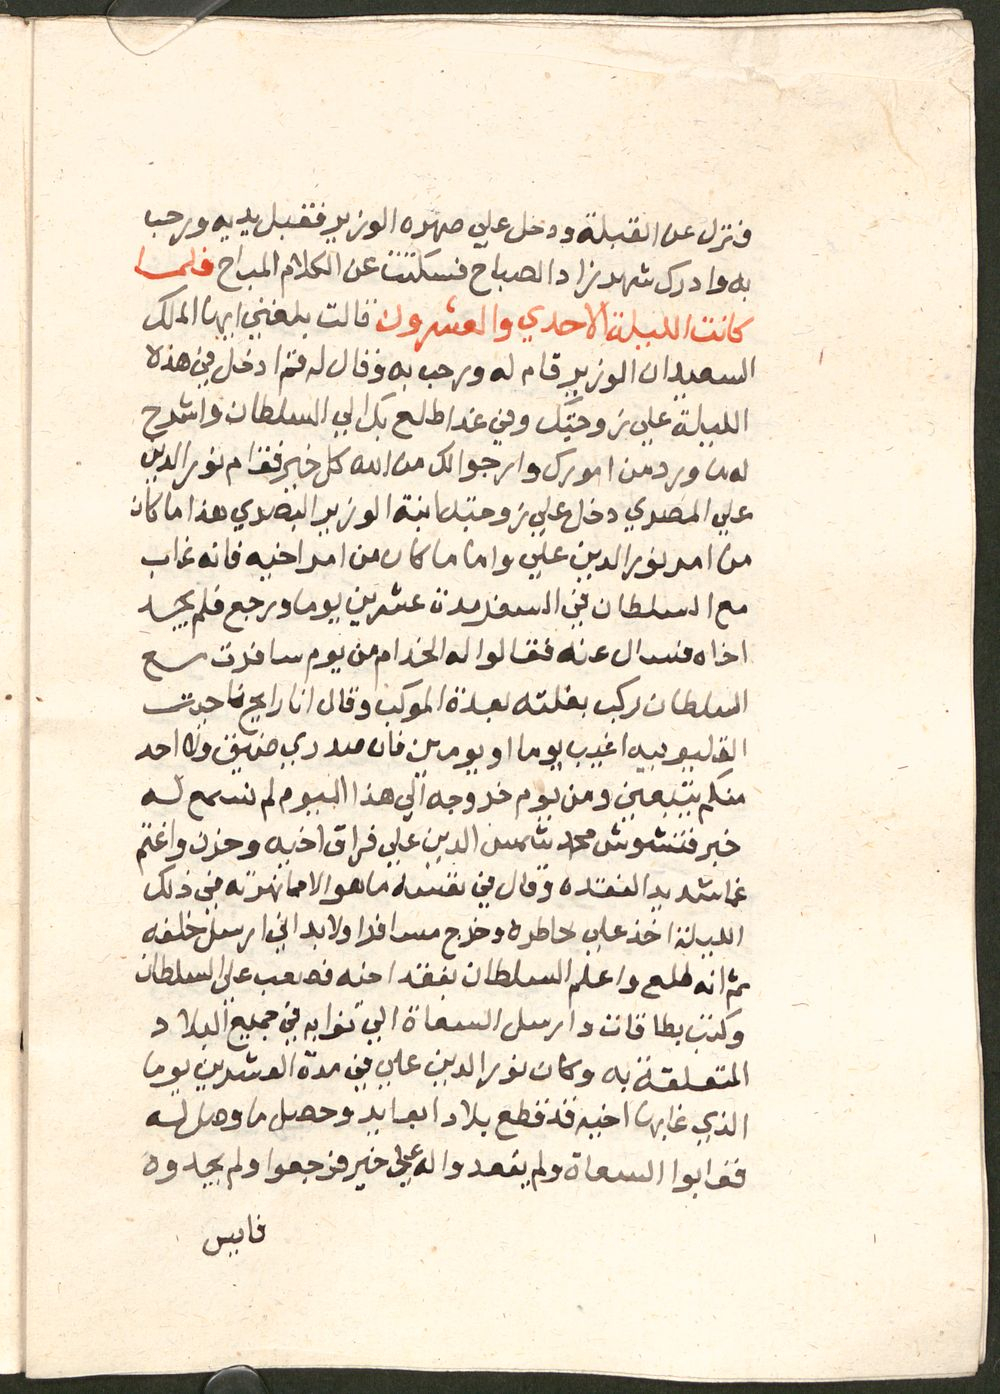 فنزل عن البغلة ودخل علي صهره الوزير فقبل يديه ورحب
به وادرك شهرزاد الصباح فسكتت عن الكلام المباح فلما
كانت الليلة الاحدي والعشرون قالت بلغني ايها الملك
السعيد ان الوزير قام له ورحب به وقال له قم ادخل في هذه
الليلة علي زوجتك وفي غد اطلع بك الي السلطان واشرح
له ما ورد من امورك وارجوا لك من الله كل خير فقام نور الدين
علي المصري دخل علي زوجته ابنة الوزير البصري هذا ما كان
من امر نور الدين علي واما ما كان من امر اخيه فانه غاب
مع السلطان في السفر مدة عشرين يوما ورجع فلم يجد
اخاه فسال عنه فقالوا له الخدام من يوم سافرت مع
السلطان ركب بغلته بعدة الموكب وقال انا رايح ناحيت
القليوبيه اغيب يوما او يومين فان صدري ضيق ولا احد
منكم يتبعني ومن يوم خروجه الي هذا اليوم لم نسمع له
خبر فتشوش محمد شمس الدين علي فراق اخيه وحزن واغتم
غما شديد الفقده وقال في نفسه ما هو الا مما نهرته في ذلك
الليلة اخذ علي خاطره وخرج مسافرا ولا بد اني ارسل خلفه
ثم انه طلع واعلم السلطان بفقد اخيه فصعب علي السلطان
وكتب بطاقات وارسل السعاة الي نوابه في جميع البلاد
المتعلقة به وكان نور الدين علي في مدة العشرين يوما
الذي غابها اخيه قد قطع بلاد ابعايد وحصل ما وصل له
فغابوا السعاة ولم يقعدوا له علي خبر فرجعوا ولم يجدوه
فايس